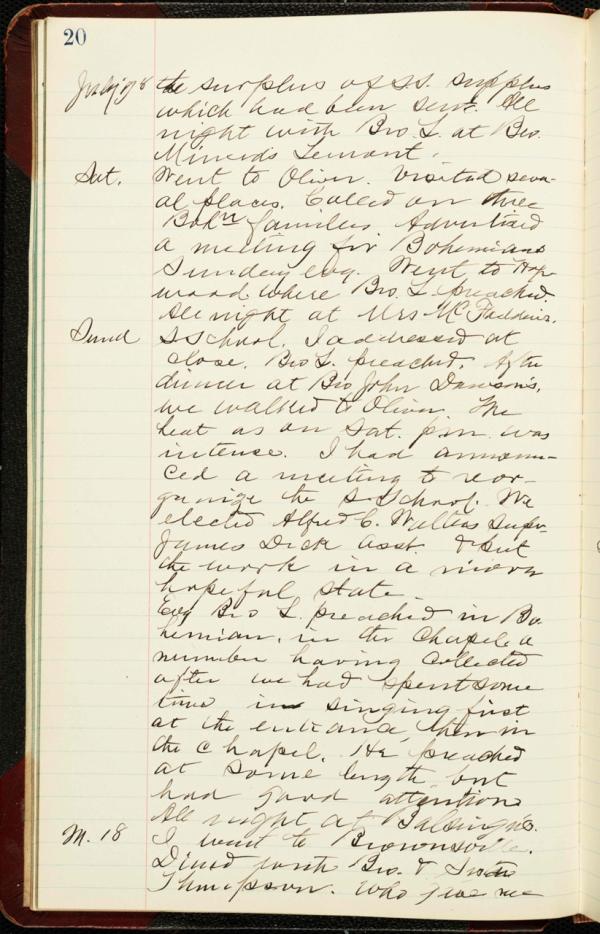 20
the surplus of S.S. supplies
which had been sent. All
night with Bro. L. at Bro.
Minerd's Lemont.
Sat. Went to Oliver. Visited sever-
al places. Called on three
Bohn families. Advertised
a meeting for Bohemians
Sunday evg. Went to Hop-
wood where Bro. L. preached.
All night at Mrs McFaddin's.
S School. I addressed at
close. Bro L. preached. After
dinner at Bro John Dawson's,
we walked to Oliver. The
heat as on Sat. p.m. was
intense. I had announ-
ced a meeting to reor-
ganize the S School. We
elected Alfred C. Walters Supt
James Dick asst. & put
the work in a more
hopeful state.
Evg Bro L. preached in Bo
hemian, in the Chapel a
number having collected
after we had spent some
time in singing first
at the entrance, then in
the chapel. He preached
at some length, but
had good attention
All night at Balsinger's.
M. 18 I went to Brownsville.
Dined with Bro. &
Thompson. Who gave me